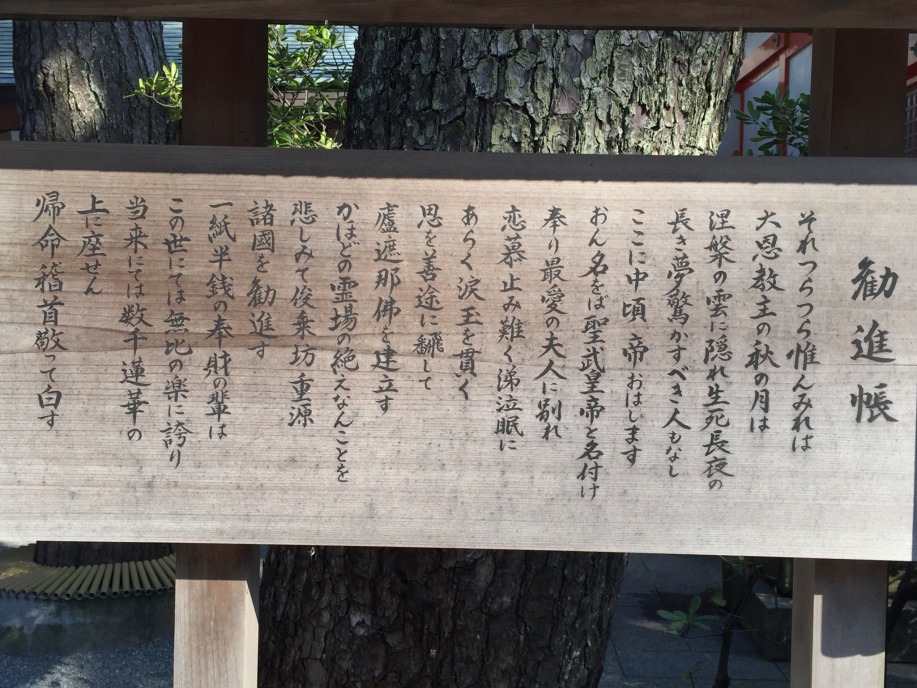 勧進帳
それつらつら惟んみれは
大恩教主の秋の月は
涅槃の雲に隠れ生死長夜の
長き夢驚かすべき人もなし
ここに中頃帝おはします
おん名をば聖武皇帝と名付け
奉り最愛の夫人に別れ
恋慕止み難く涕泣眠に
あらく涙玉を貫く
思を善途に翻して
廬遮那佛を建立す
かほどの霊場の絶えなんことを
悲しみて俊乗坊重源
諸國を勧進す
一紙半銭の奉財の輩は
この世にては無比の楽に誇り
当来にては数千蓮華の
上に座せん
帰命稽首敬って白す